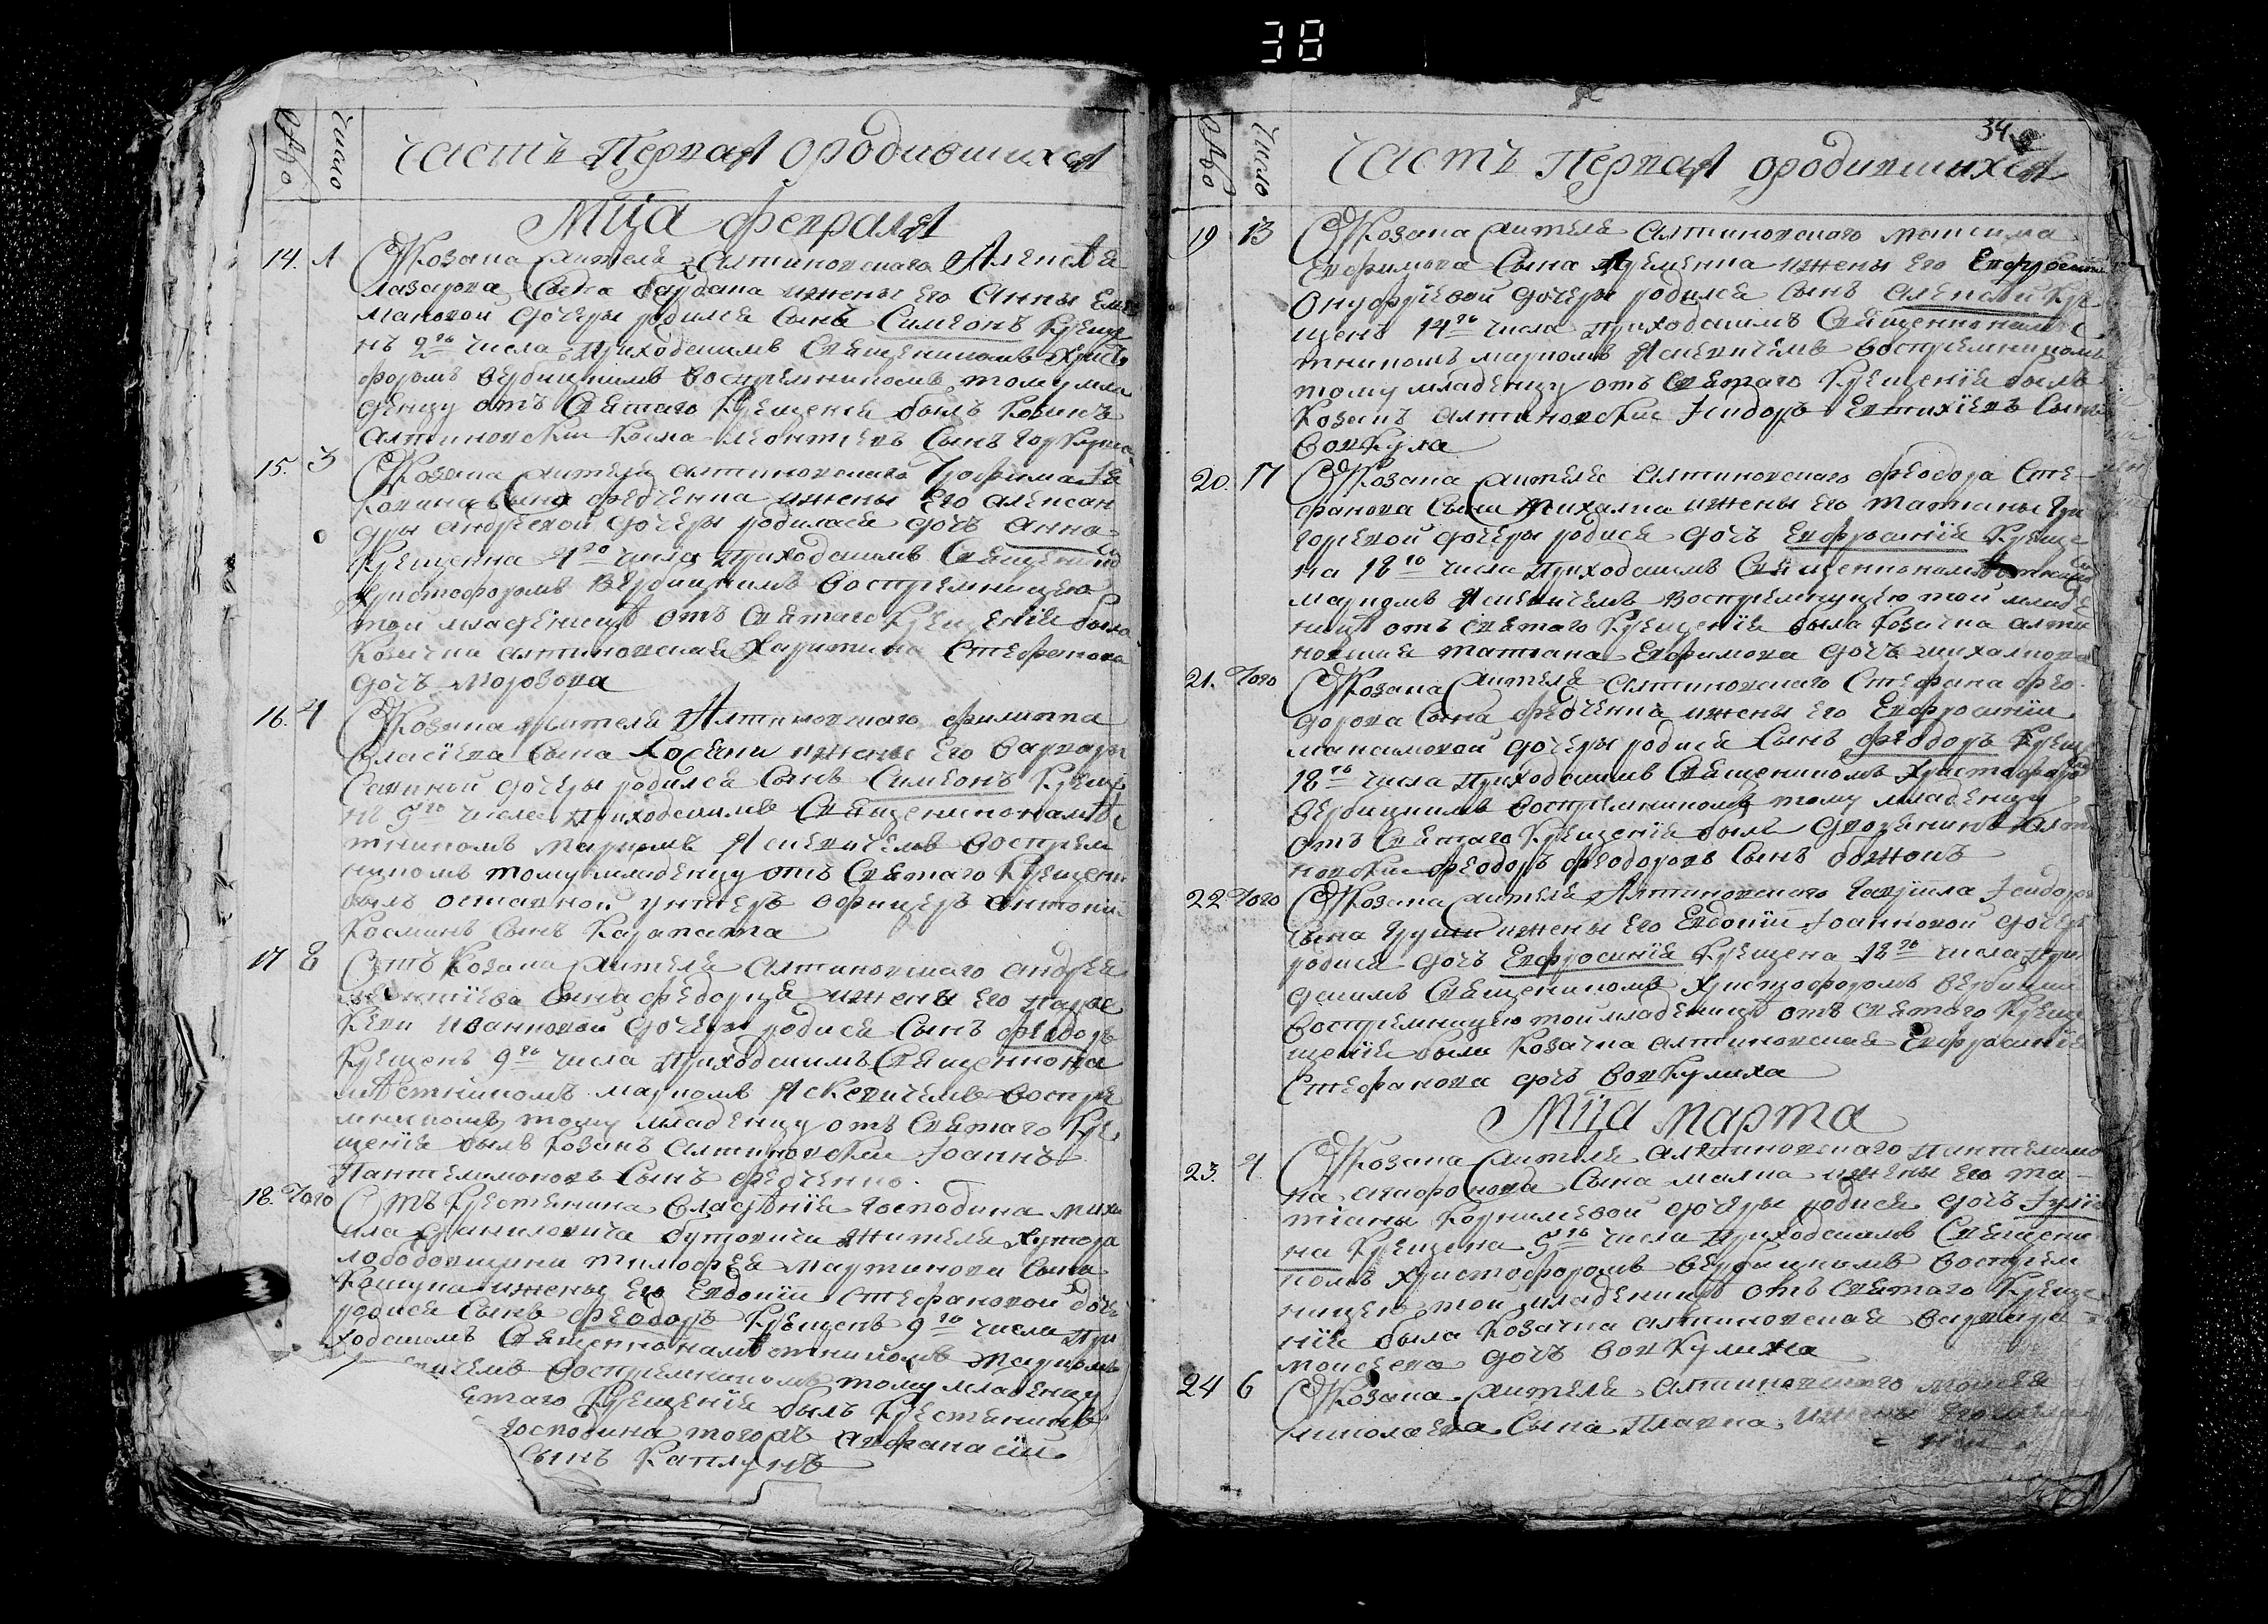 38
Число
Часть Первая о родившихся
Мца февраля
14. 1 У Козака жителя Алтиновского Алексея
Лазарова Сына жены его Анны
дочери родился Сынъ Симеонъ Креще
нъ 2го числа Приходскимъ Священникомъ Христо
форомъ Вербицкимъ восприемникомъ тому мла
денцу отъ Святаго Крещения былъ Козакъ
Алтиновский Косма Леонтиевъ Сынъ
15. 3 У Козака жителя Алтиновского Трофима
Сына Федченка жены его Алексан
дры Андреевой дочери родилася дочъ Анна
Крещенна 4го числа Приходскимъ Священнико
Христофоромъ Вербицкимъ восприемницею
той младеницѣ отъ Святаго Крещения была
Козачка Алтиновская Харитина Стефанова
дочъ Морозова
16. 4 У Козака жителя Алтиновского Филиппа
Власиева Сына жены его Варвары
Савиной дочери родился Сынъ Симеонъ Креще
нъ 5го числа Приходскимъ Священнонамѣс
тникомъ Маркомъ Яскевичемъ восприем
никомъ тому младенцу отъ Святаго Крещени
былъ отставной унтеръ офицеръ Антоний
Косминъ Сынъ Карапата
17 8 Отъ Козака жителя Алтиновского Андрея
Леонтиева Сына Федорца жены его Парас
кеви Иванновой дочери родися Сынъ Феодоръ
Крещенъ 9го числа Приходскимъ Священнона
мѣстникомъ Маркомъ Яскевичемъ воспри
мникомъ тому младенцу отъ Святаго Кре
щения былъ Козакъ Алтиновский Иоаннъ
Пантелимоновъ Сынъ Федченко
18. Того Отъ Крестянина Владѣния Господина Миха
ила Даниловича Бутовича жителя хутора
Лободовщини Тимофея Мартинова Сына
жены его Евдокии Стефановой доче
родися Сынъ Феодоръ Крещенъ 9го числа При
ходскимъ Священнонамѣстникомъ Маркомъ
восприемникомъ тому младенцу
Крещения былъ Крестянинъ
Господина того жъ Афанасий
Сынъ Каплунъ
34
Число
Часть Первая о родившихся
19 13 У Козака жителя Алтиновского Максима
Евфимова Сына жены его
Онуфриевой дочери родился Сынъ Алексий Кре
щенъ 14го числа Приходскимъ Священнонамѣс
тникомъ Маркомъ Яскевичемъ восприемникомъ
тому младенцу отъ Святаго Крещения былъ
Козакъ Алтиновский Исидоръ Евтихиевъ Сынъ
Вовкула
20. 17 У Козака жителя Алтиновского Феодора Сте
фанова Сына Михалка жены его Татианы Гри
горевой дочери родися дочъ Евфросиния Креще
на 18го числа Приходскимъ Священнонамѣстником
Маркомъ Яскевичемъ восприемницею той младе
ницѣ отъ Святаго Крещения была Козачка Алти
новская Татиана Евфимова дочъ Михалкова
21. Того У Козака жителя Алтиновского Стефана Фео
дорова Сына Федченка жены его Евфросинии
Максимовой дочери родися Сынъ Феодоръ Крещ
18го числа Приходскимъ Священникомъ Христофоро
Вербицкимъ восприемникомъ тому младенцу
отъ Святаго Крещения былъ Дворянинъ Алти
новский Феодоръ Феодоровъ Сынъ Божокъ
22 Того У Козака жителя Алтиновского Гавриила Исидоро
Сына жены его Евдокии Иоанновой дочери
родися дочъ Евфросиния Крещена 18го числа При
дскимъ Священникомъ Христофоромъ Вербицки
восприемницею той младеницѣ отъ Святаго Креще
щения была Козачка Алтиновская Евфросиния
Стефанова дочъ Вовкулиха
Мца Марта
23. 4. У Козака жителя Алтиновского Пантелимо
на Агафонова Сына Малка жены его Та
тианы Корнилиевой дочери родися дочъ Иулиа
на Крещена 5го числа Приходскимъ Священи
комъ Христофоромъ Вербицкимъ восприем
ницею той младеницѣ отъ Святаго Креще
ния была Козачка Алтиновская Варвара
Моисеева дочъ Вовкулиха
24 6 У Козака жителя Алтиновского Моисея
Николаева Сына Плавка жены его